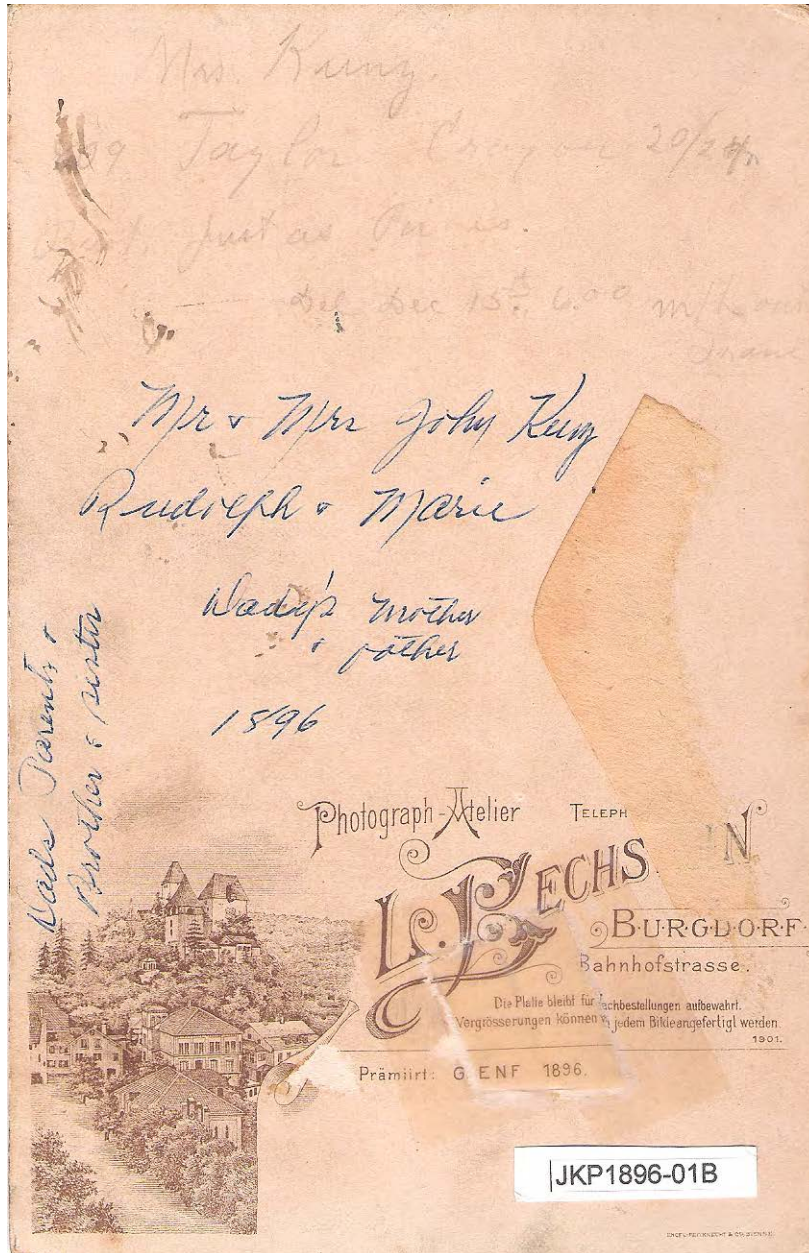 Mrs. Kunz.
Taylor Crayon 20/24
Just as
Del Dec 15 6.00
Mr & Mrs John Kunz
Rudolph & Marie
Dady's mother
& father
1896
Dads Parents &
Brother & sister
Photograph-Atelier TELEPH
L. BECHS IN
BURGDORF
Bahnhofstrasse.
Die Platte bleibt für achbestellungen aufbewahrt.
Vergrösserungen können jedem Bilde angefertigt werden.
1901.
Prämiirt: GENF 1896.
JKP1896-01B